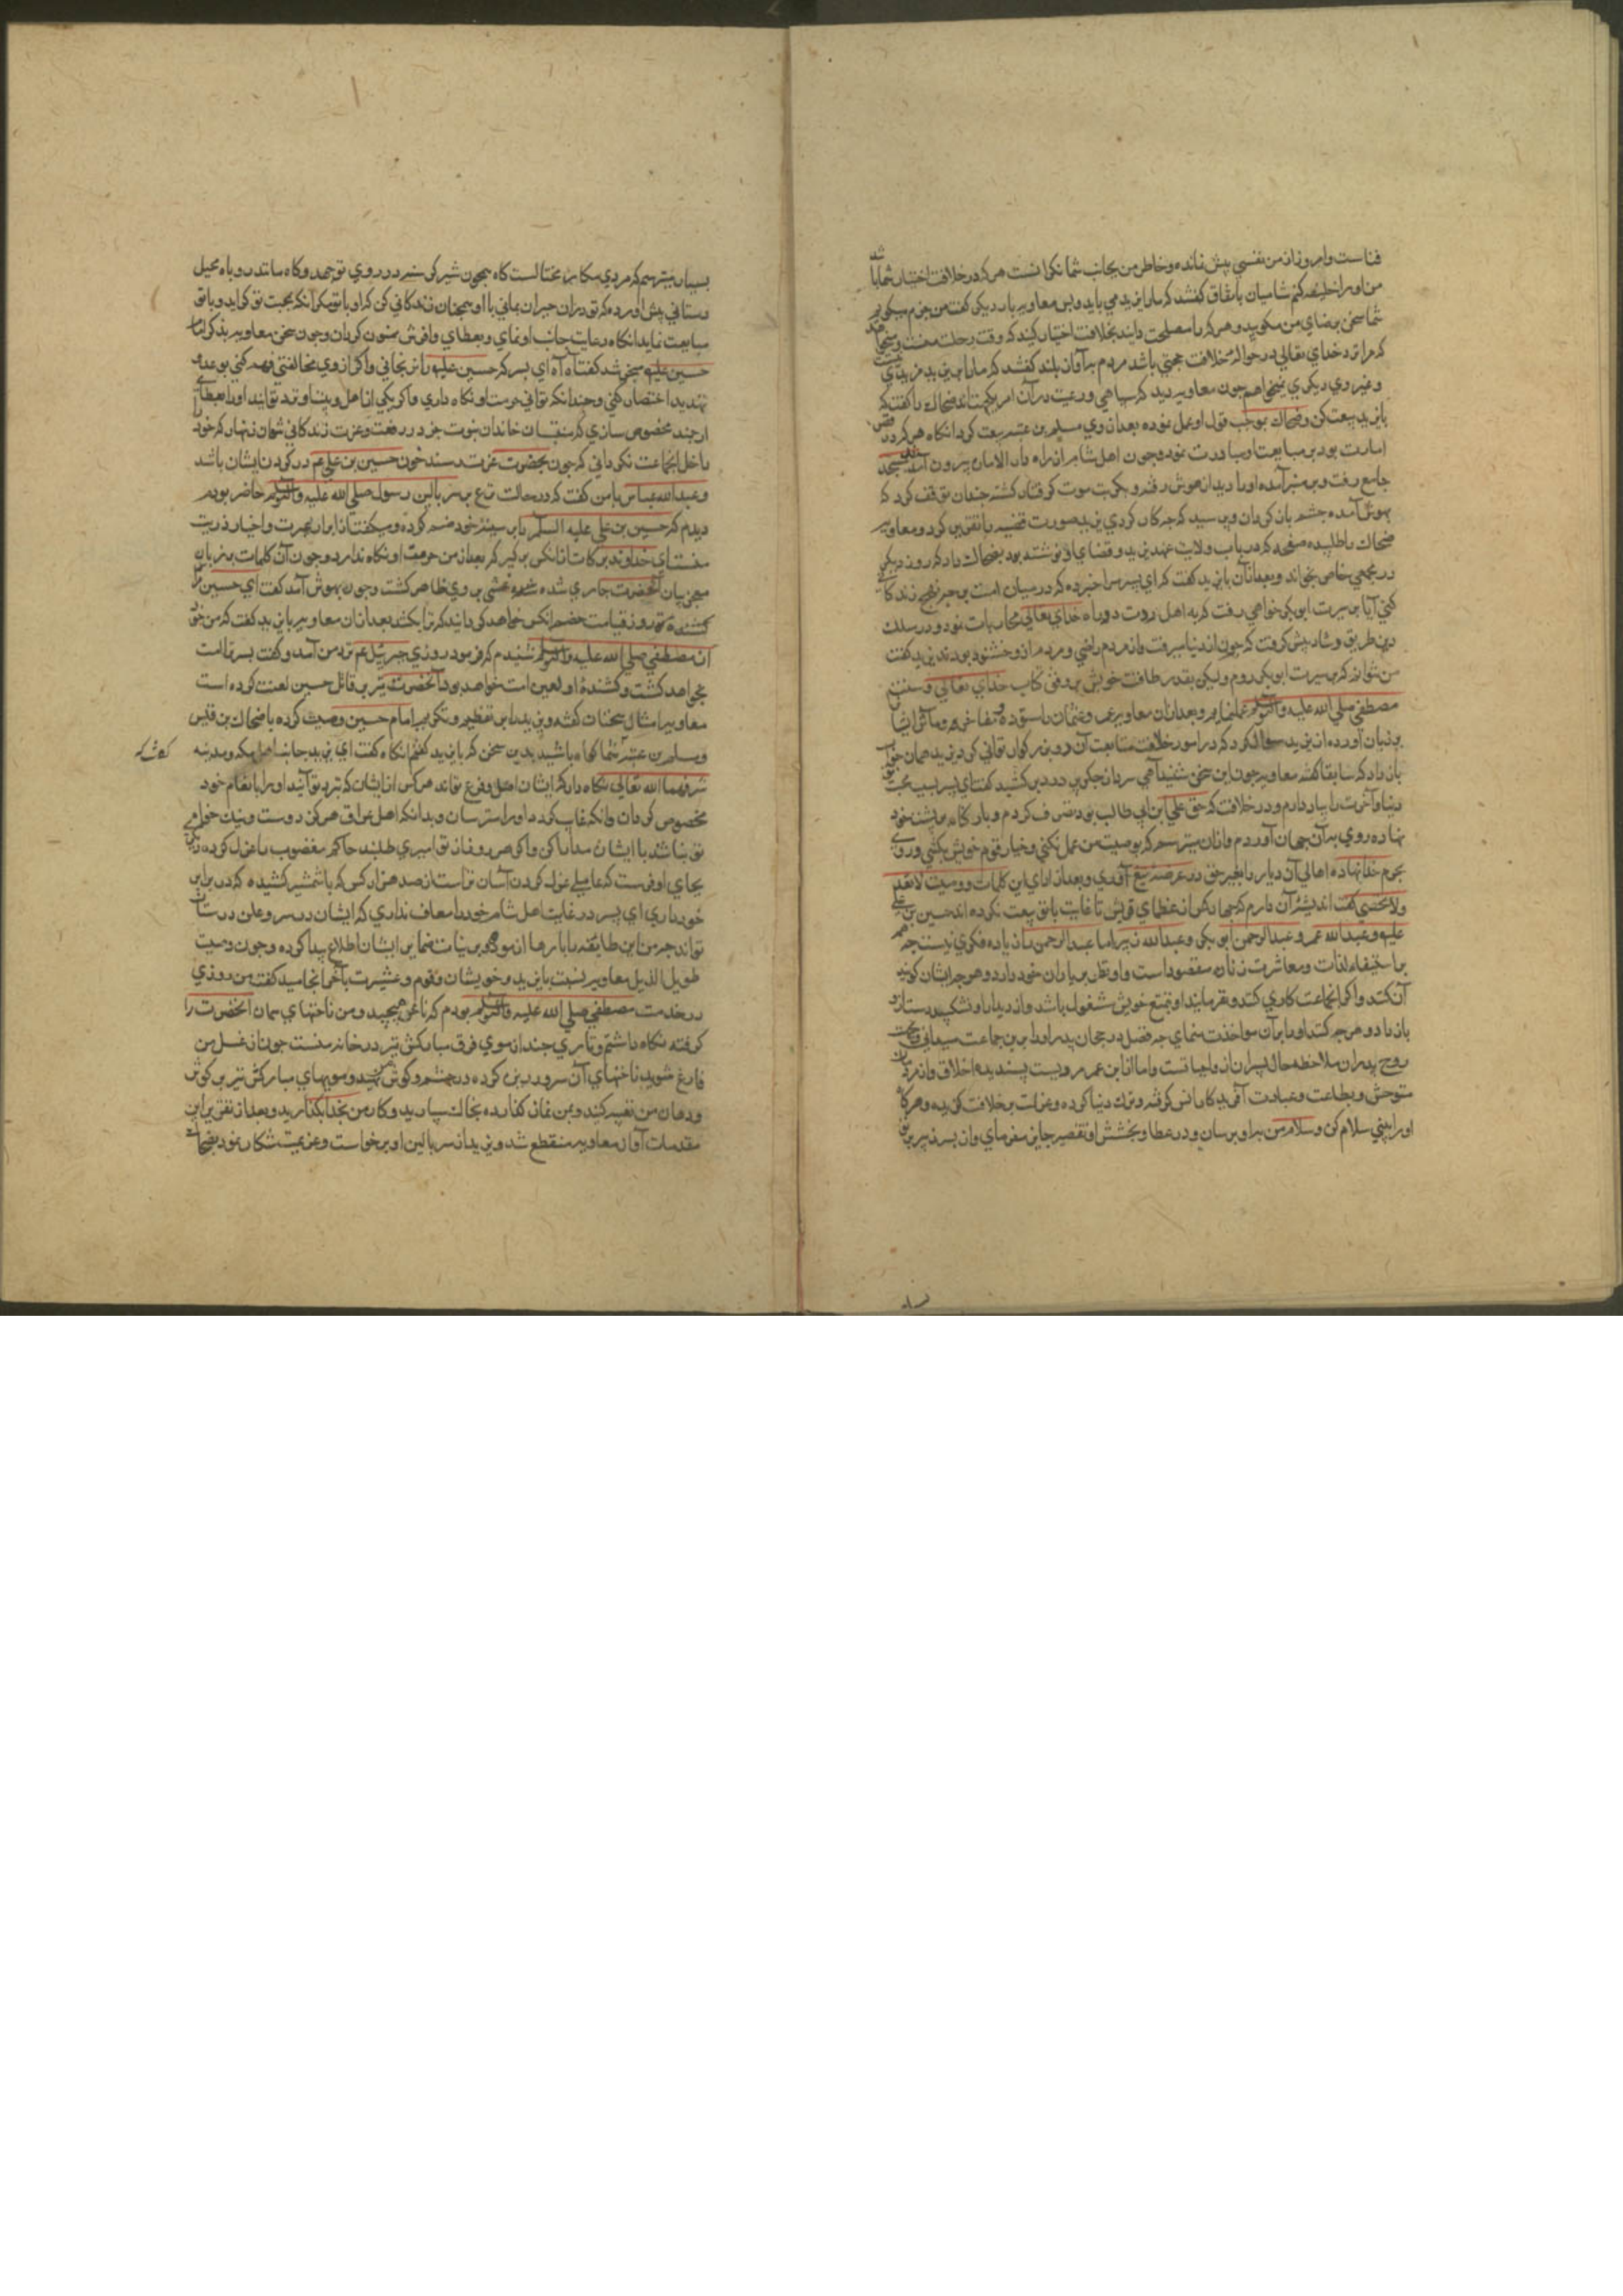 فناست و امروز از من نفسی بیش نمانده و خاطر من بجانب شما نکرانست هر که در خلافت اختیار شما باشد
من او را خلیفه کنم شامیان باتفاق کفتند که ما را یزید می باید و بس معاویه بار دیکر کفت من جزم میکویم
شما سخن برضای من مکویید و هر کرا مصلحت دانید بخلافت اختیار کنید که وقت رحلت منست و میخواهم
که مرا نزد خدای تعالی در حواله خلافت حجتی باشد مردم بر آواز بلند کفتند که ما را به از یزید مزیدی نیست
و غیر وی دیکری نمیخواهیم چون معاویه دید که سپاهی و رعیت در آن امر یکجهت اند ضحاک را کفت که
با یزید بیعت کن و ضحاک بموجب قول او عمل نموده بعد از وی مسلم بن عتبه بیعت کرد انکاه هر که در
امارت بود بر مبایعت مبادرت نمود و چون اهل شام از راه دار الاماره بیرون آمد بمسجد
جامع رفت و بر منبر آمده او را دید از هوش رفته و بسکرت موت کرفتار کشته چندان توقف کرد که
بهوش آمده چشم باز کردان و پرسید که چه کار کردی یزید صورت قضیه را تقریر کرد و معاویه
ضحاک را طلبیده صفحه که در باب ولایت عهد یزید و قضای نوشته بود بضحاک داد که روز دیکر
در مجمعی خاص بخواند و بعد از آن با یزید کفت که ای پسر مرا خبر ده که در میان امت بر چه نهج زندکانی
کنی آیا بر سیرت ابو بکر خواهی رفت که به اهل ردت دو ماه خدای تعالی محاربات نمود و در سلک
دین طریق رشاد پیش کرفت که چون از دنیا میرفت مردم راضی و مردم ازو خشنود بودند یزید کفت
من نتوانم که بر سیرت ابو بکر روم و لیکن بقدر طاقت خویش بر وفق کتاب خدای تعالی و سنت
مصطفی صلی الله علیه وآله وسلم عمل نمایم و بعد از آن معاویه عمر و عثمان را ستوده و مفاخر و مآثر ایشان
بر زبان آورده از یزید سوال کرد که در امور خلافت متابعت آن دو بزرکوار توانی کرد یزید همان جواب
باز داد که سابقا کفته معاویه چون این سخن شنید آهی سرد از جکر پر درد بر کشید کفت ای پسر بسبب محبت تو
دنیا و آخرت را بباد دادم و در خلافت که حق علی ابن ابی طالب بود تصرف کردم و بار کناه بر پشت خود
نهاده روی بر آن جهان آوردم و از آن میترسم که بوصیت من عمل نکنی و خیار قوم خویش بکشی و روی
بحرم خدا نهاده اهالی آن دیار را بغیر حق در عرصه تیغ آوری و بعد از ادای این کلمات و وصیت لا تعد
ولا تحصی کفت اندیشه آن دارم که چهار کس از عظمای قریش تا غایت با تو بیعت نکرده اند حسین بن علی
علیه و عبد الله عمر و عبد الرحمن ابو بکر و عبد الله زبیر اما عبد الرحمن را زیاده فکری نیست چه همه
بر استیفاء لذات و معاشرت زنان مقصور است و او نظر بر یاران خود دارد و هر چه ایشان کویند
آن کند و اکر انجماعت کاری کنند و بفرمایند او بتمتع خویش مشغول باشد
باز دارد و هر چه کند او را بر آن مواخذت ننمای چه فضل درجات پدر او را برین جماعت میدانی
روح پدران ملاحظه حال پسران از واجباتست و اما ابن عمر مردیست پسندیده اخلاق و از مردمان
متوحش و بطاعت و عبادت آفریدکار انس کرفته و ترک دنیا کرده و عزلت بر خلافت کزیده و هر کاه
او را بینی سلام کن و سلام من بدو برسان و در عطا و بخشش او تقصیر جایز مفرمای و از پسر زبیر بر تو
بسیار میترسم که مردی مکار محتالست کاه همچون شیر کرسنه در روی تو جهد و کاه مانند روباه بحیل
دستانی پیش آورده که تو در آن حیران بمانی با او همچنان زندکانی کن که او با تو میکند مکر آنکه بمحبت تو کراید و با تو
مبایعت نماید انکاه رعایت جانب او نمای و بعطای وافرش ممنون کردان و چون سخن معاویه بذکر امام
حسین علیه منجر شد کفت آه آه ای پسر که حسین علیه را نرنجانی و اکر از وی مخالفتی فهم کنی بوعد و
تهدید اختصار کنی و چندانکه توانی حرمت او نکاه داری و اکر یکی از اهل و بیت او نزد تو آیند او را بعطای
ارجمند مخصوص سازی که منتسبان خاندان نبوت جز در رفعت و عزت زندکانی نتوانند زنهار که خود را
داخل انجماعت نکردانی که چون بحضرت عزت رسند خون حسین بن علی عم در کردن ایشان باشد
و عبد الله عباس با من کفت که در حالت نزع بر سر بالین رسول صلی الله علیه وآله وسلم حاضر بودم
دیدم که حسین بن علی علیه السلم را بر سینه خود ضم کرده و میکفت از ابرار عترت و اخیار ذریت
منست ای خداوند برکات از آنکس بر کیر که بعد از من حرمت او نکاه ندارد و چون آن کلمات بر زبان
معجز بیان آنحضرت جاری شده شمه غشی بر وی ظاهر کشت و چون بهوش آمد کفت ای حسین مرا
کشنده تو روز قیامت خصم آنکس خواهد کردانید که ترا بکشد بعد از آن معاویه با یزید کفت که من خود
از مصطفی صلی الله علیه وآله وسلم شنیدم که فرمود روزی جبرئیل عم نزد من آمد و کفت پسر ترا امت
بخواهد کشت و کشنده او لعین امت خواهد بود و آنحضرت نیز بر قاتل حسین لعنت کرده است
معاویه امثال سخنان کفته و یزید را بر تعظیم و تکریم امام حسین وصیت کرده با ضحاک بن قیس
و مسلم بن عتبه شما کواه باشید بدین سخن که با یزید کفتم انکاه کفت ای یزید جانب اهل مکه و مدینه
کعبه
شرفهما الله تعالی نکاه دار که ایشان اصل و فرع تواند هر کس از ایشان که نزد تو آیند او را بانعام خود
مخصوص کردان و آنکه غایب کردد او را سترسان و بدانکه اهل عراق هرکز دوست و نیک خواه
تو نباشند با ایشان مدارا کن و اکر هر روز از تو امیری طلبند حاکم مغضوب را عزل کرده دیکری
بجای او فرست که عاملی عزل کردن آسان تر است از صد هزار کس که با شمشیر کشیده که در برابر
خود داری ای پسر در غایت اهل شام خود را معاف نداری که ایشان در سر و علن دوستان
تواند چه من این طایفه را بارها آزموده و بر نیات ضمایر ایشان اطلاع پیدا کرده و چون وصیت
طویل الذیل معاویه نسبت با یزید و خویشان و قوم و عشیرت بآخر انجامید کفت من روزی
در خدمت مصطفی صلی الله علیه وآله وسلم بودم که ناخن میچید و من ناخنهای مبارک آنحضرت را
کرفته نکاه داشتم و تاری چند از موی فرق مبارکش نیز در خانه منست چون از غسل من
فارغ شوید ناخنهای آن سرور ریزه کرده در چشم و کوش نهید و مویهای مبارکش نیز بر کوش
و دهان من تعبیه کنید و بر من نماز کذارده بخاک سپارید و کار من بخدا بکذارید و بعد از تقریر این
مقدمات آواز معاویه منقطع شد و یزید از سر بالین او برخواست و عزیمت شکار نمود بضحاک